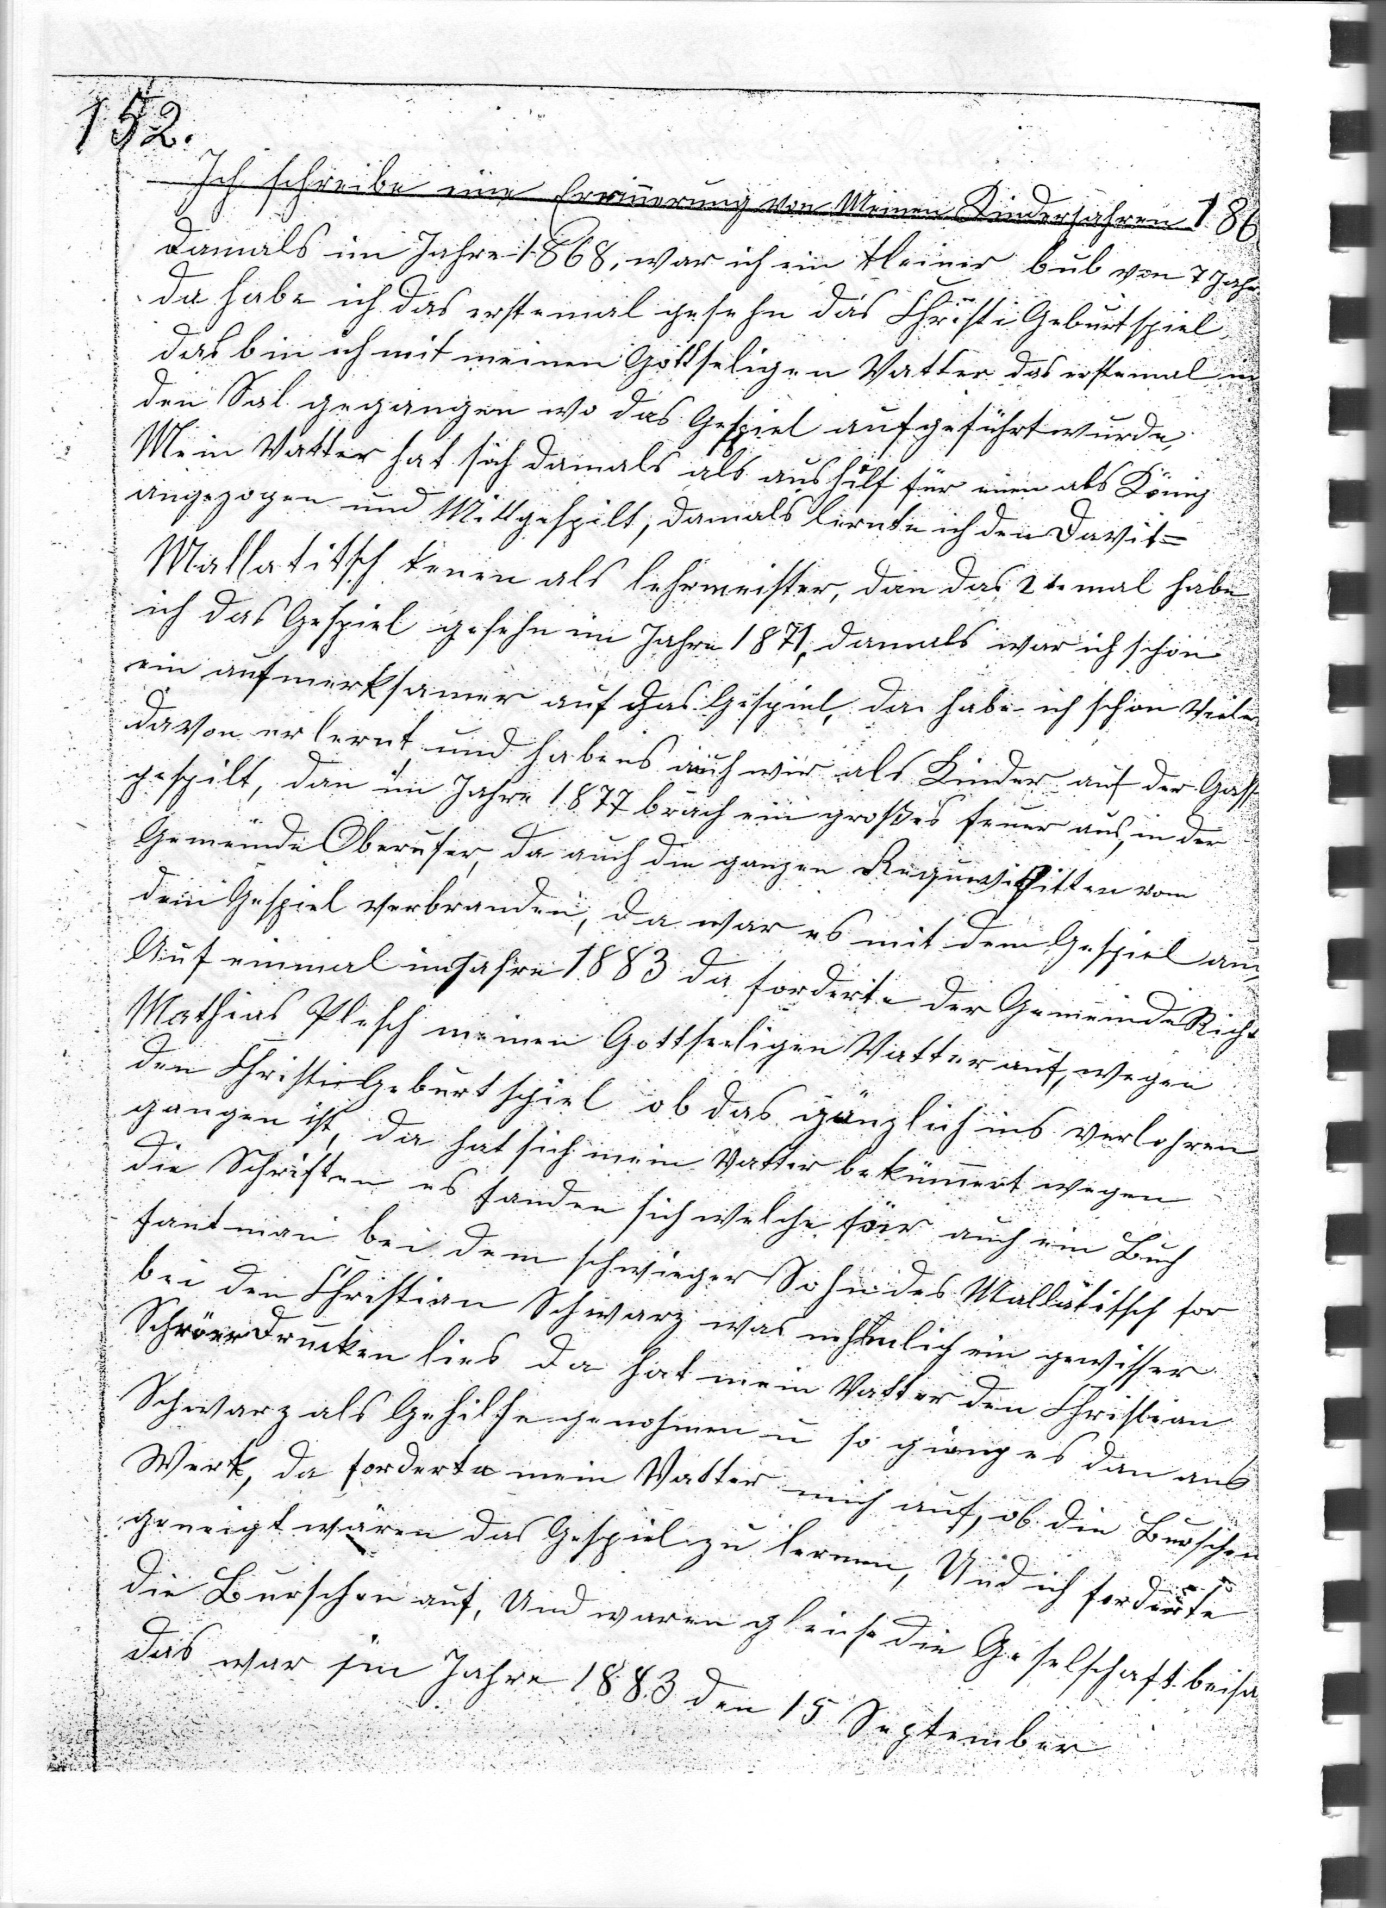 152.
Ich schreibe eine Errinnerung von Meinen Kinderjahren 186
Damals im Jahre 1868, war ich ein kleiner bub von 7 Jahr
da habe ich das erstemal gesehn das Christi Geburtspiel,
das bin ich mit meinen Gottseligen Vatter das erstemal in
den Sal gegangen wo das Gespiel aufgeführt wurde,
Mein Vatter hat sich damals als aushilf für einen als König
angezogen und Mittgespilt, damals lernte ich den Davit=
Mallatitsch kenen als lehrmeister, dan das 2te mal habe
ich das Gespiel gesehn im Jahre 1871, damals war ich schon
ein aufmerksamer auf das Gespiel, da habe ich schon Viele
davon erlernt, und haben es auch wir als Kinder auf der Gass
gespilt, dan im Jahre 1877 brach ein großes feuer aus, in der
Gemeinde Oberufer, da auch die ganzen Requwisitten vom
dem Gespiel verbranden, da war es mit dem Gespiel aus
Auf einmal im Jahre 1883 da forderte der Gemeinde Richt
Mathias Plesch meinen Gottseeligen Vatter auf, wegen
den Christi Geburtspiel ob das gänzlich ins verlohren
gangen ist, da hat sich mein Vatter bekümmert wegen
die Schriften es fanden sich welche för auch ein Buch
fant man bei dem schwieger Sohn des Mallatitsch for
bei den Christian Schwarz was nehmlich ein gewisser
Schröer Drucken lies da hat mein Vatter den Christian
Schwarz als Gehilfe genohmen u so gieng es dan ans
Werk, da forderte mein Vatter mich auf, ob die Burschen
geneigt wären das Gespiel zu lernen, Und ich forderte
die Burschen auf, Und waren gleich die Geselschaft beisa
das war im Jahre 1883 den 15 September